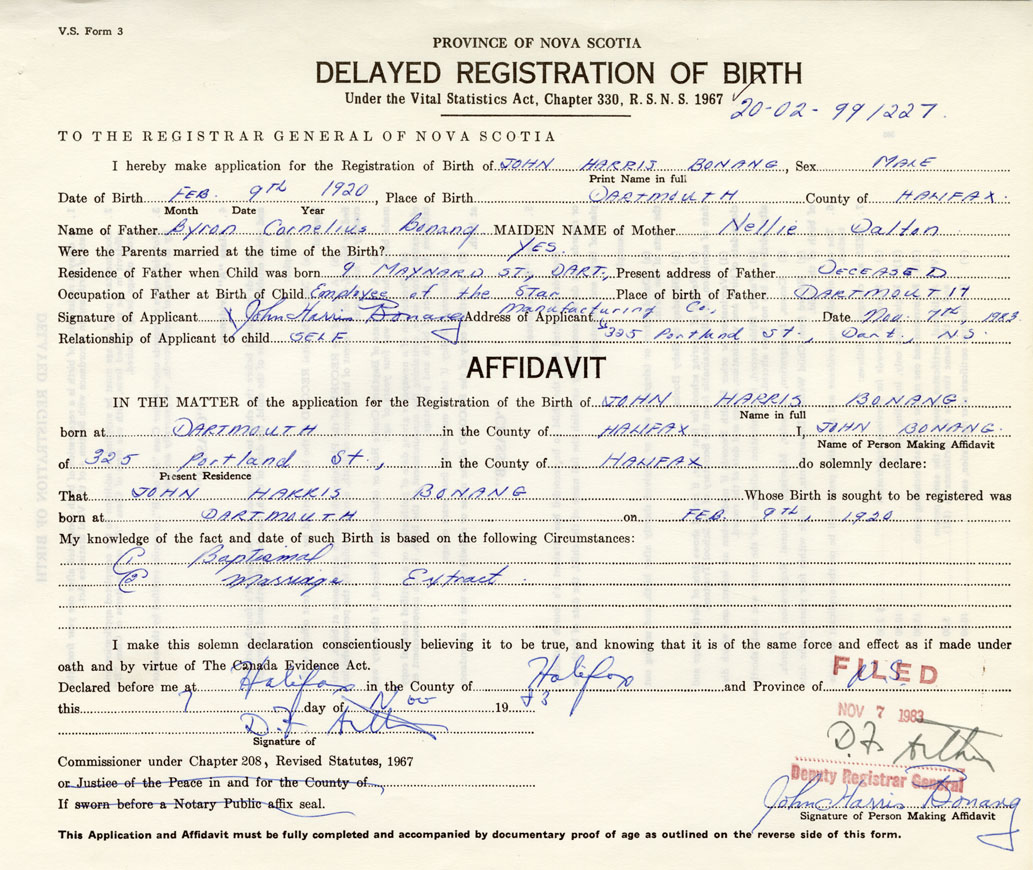 V.S. Form 3
PROVINCE OF NOVA SCOTIA
DELAYED REGISTRATION OF BIRTH
Under the Vital Statistics Act, Chapter 330, R. S. N. S. 1967
20-02-991227.
TO THE REGISTRAR GENERAL OF NOVA SCOTIA
I hereby make application for the Registration of Birth of JOHN HARRIS BONANG, Sex MALE
Print Name in full
Date of Birth FEB. 9TH 1920, Place of Birth DARTMOUTH County of HALIFAX.
Month Date Year
Name of Father Byron Cornelius Bonang MAIDEN NAME of Mother Nellie Dalton
Were the Parents married at the time of the Birth? YES.
Residence of Father when Child was born 9 MAYNARD ST., DART., Present address of Father DECEASED
Occupation of Father at Birth of Child Employee of the Star Manufacturing Co., Place of birth of Father DARTMOUTH
Signature of Applicant X John Harris Bonang Address of Applicant 325 Portland St., Dart., NS Date Nov. 7th, 1983
Relationship of Applicant to child SELF
AFFIDAVIT
IN THE MATTER of the application for the Registration of the Birth of JOHN HARRIS BONANG.
Name in full
born at DARTMOUTH in the County of HALIFAX I, JOHN BONANG.
Name of Person Making Affidavit
of 325 Portland St., in the County of HALIFAX do solemnly declare:
Present Residence
That JOHN HARRIS BONANG Whose Birth is sought to be registered was
born at DARTMOUTH on FEB. 9TH, 1920
My knowledge of the fact and date of such Birth is based on the following Circumstances:
① Baptismal
② Marriage Extract.
I make this solemn declaration conscientiously believing it to be true, and knowing that it is of the same force and effect as if made under
oath and by virtue of The Canada Evidence Act.
Declared before me at Halifax in the County of Halifax and Province of N.S.
FILED
this 7 day of Nov 1983
NOV 7 1983
D.F. Arthur
D.F. Arthur
Signature of
Commissioner under Chapter 208, Revised Statutes, 1967
Deputy Registrar General
or Justice of the Peace in and for the County of
John Harris Bonang
If sworn before a Notary Public affix seal.
Signature of Person Making Affidavit
This Application and Affidavit must be fully completed and accompanied by documentary proof of age as outlined on the reverse side of this form.